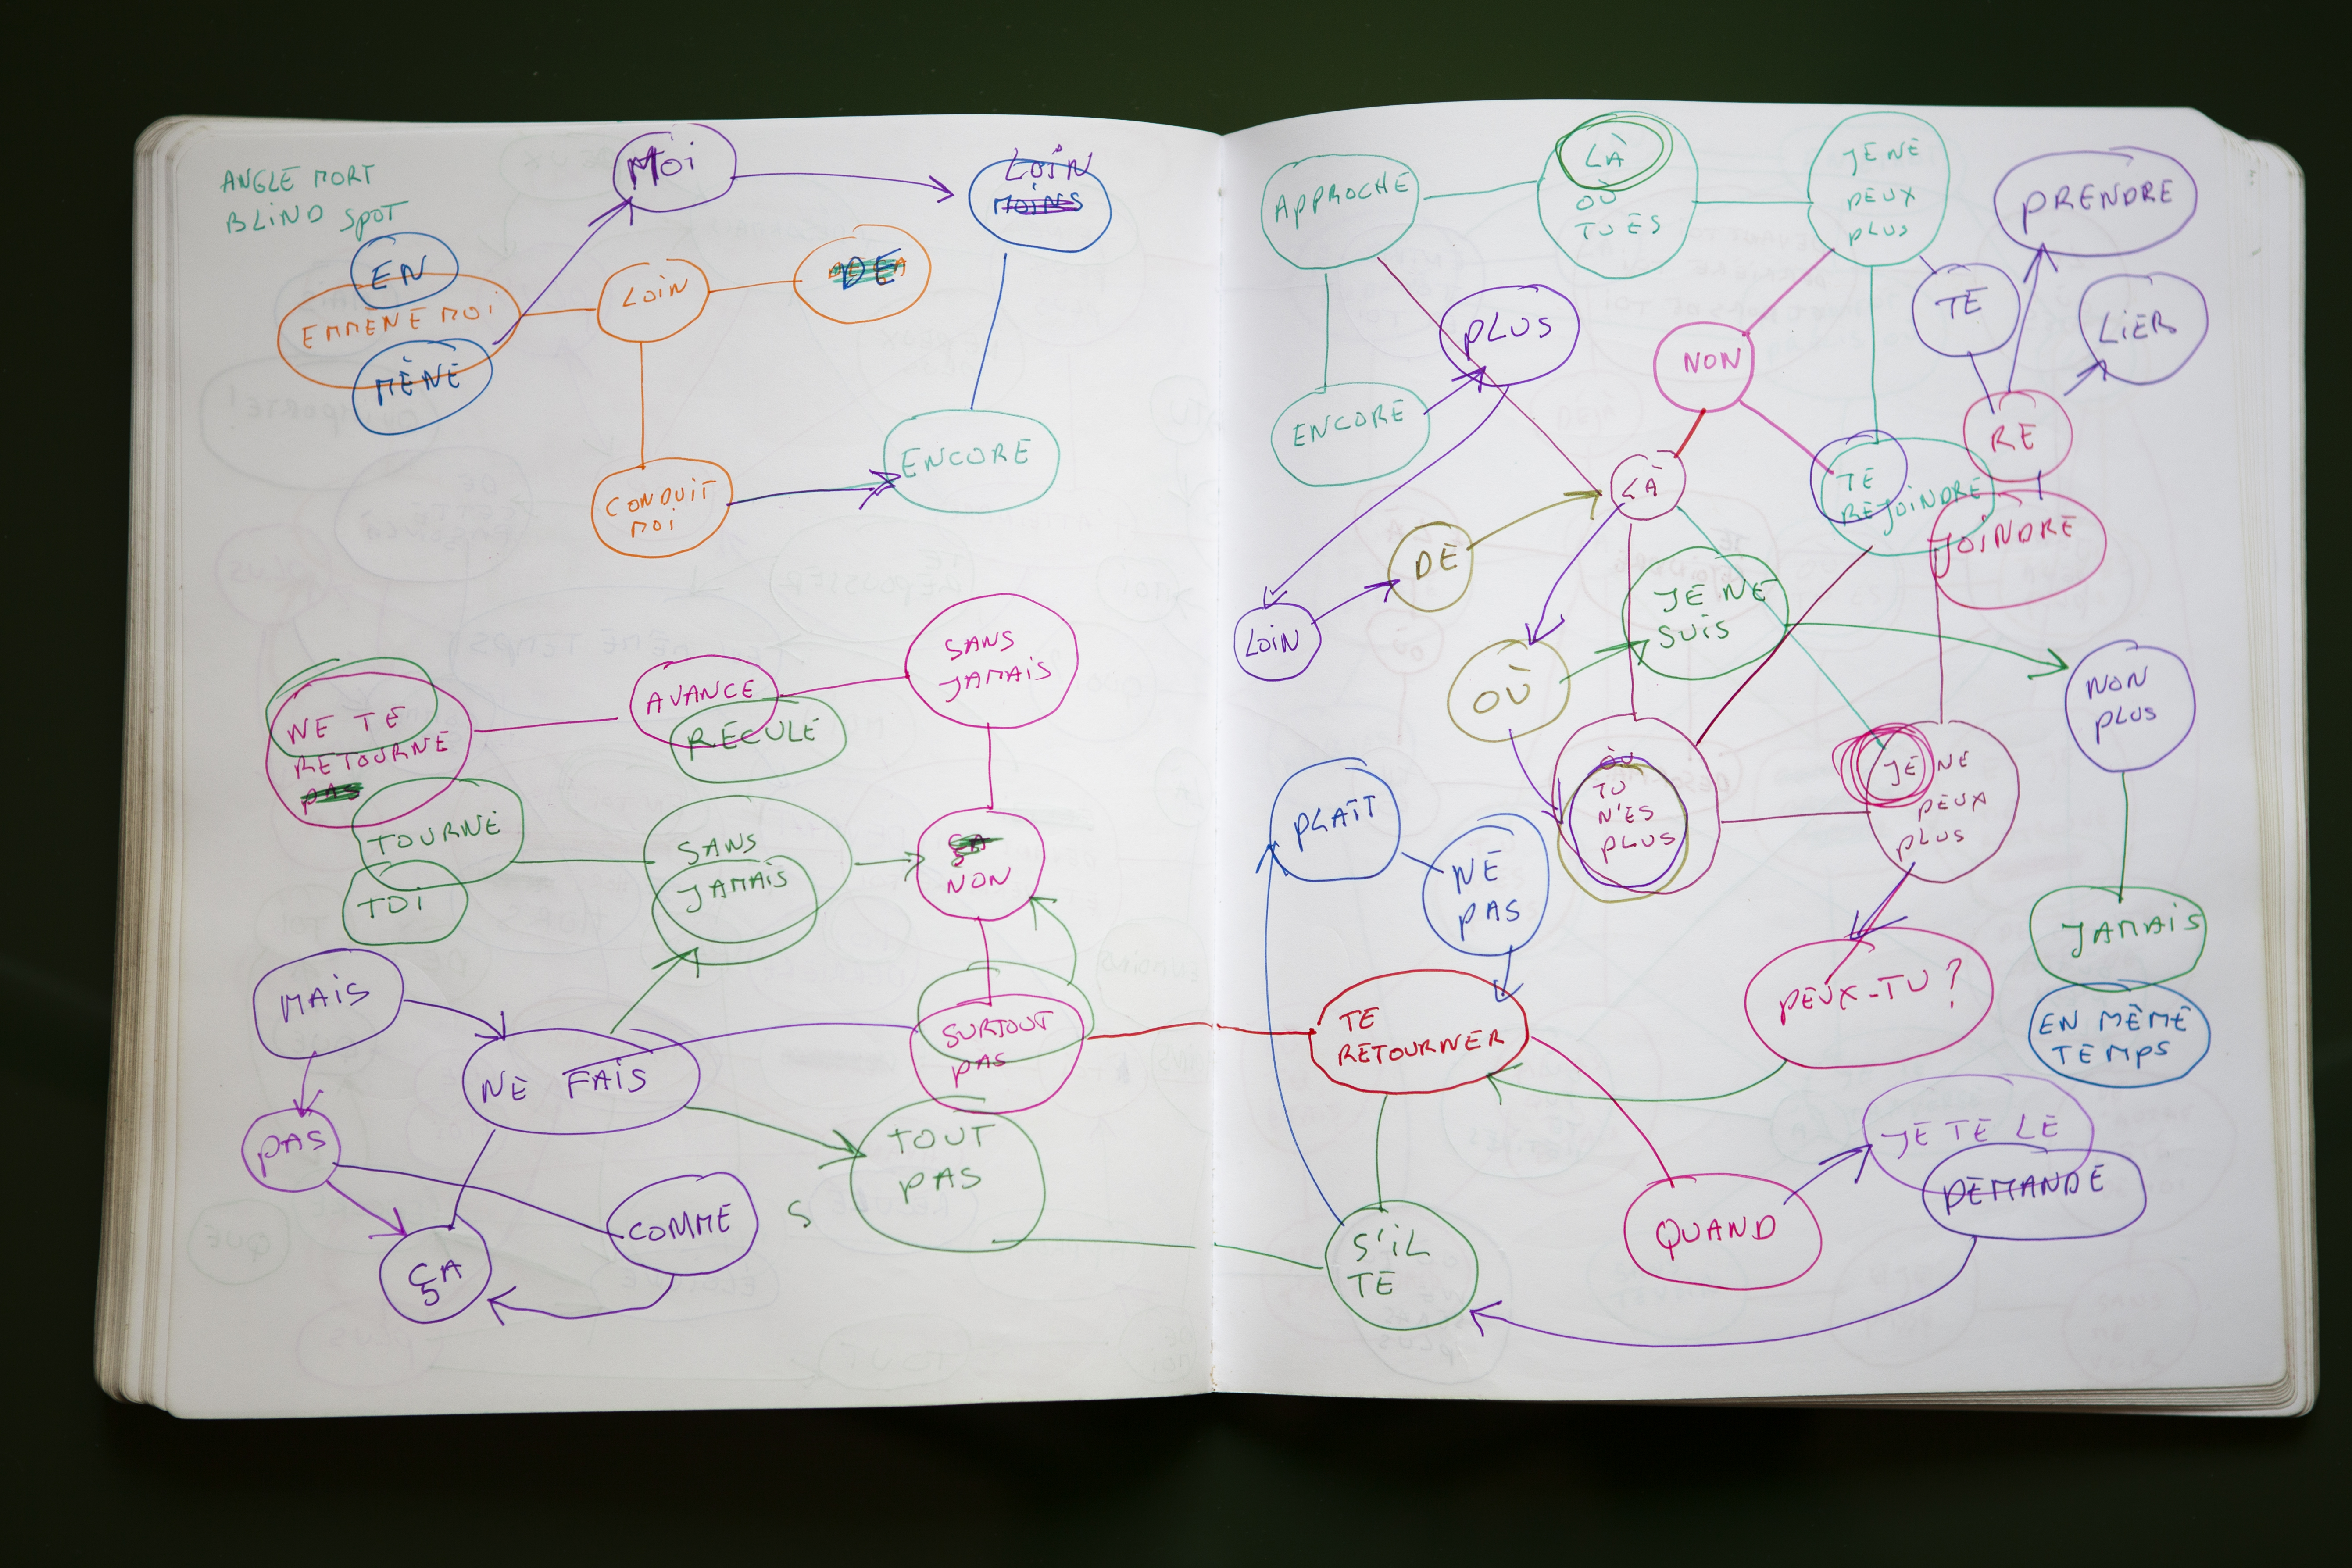 ANGLE MORT
BLIND SPOT
MOI
LOIN
MOINS
EN
EMMENE MOI
MÈNE
LOIN
DE
CONDUIT
MOI
ENCORE
NE TE
RETOURNE
PAS
AVANCE
RECULE
SANS
JAMAIS
TOURNE
TOI
SANS
JAMAIS
NON
MAIS
NE FAIS
SURTOUT
PAS
PAS
ÇA
COMME
S
TOUT
PAS
APPROCHE
LÀ
OÙ
TU ES
JE NE
PEUX
PLUS
PRENDRE
TE
LIER
PLUS
NON
RE
ENCORE
LÀ
TE
REJOINDRE
JOINDRE
DE
JE NE
SUIS
LOIN
OÙ
NON
PLUS
OÙ
TU
N'ES
PLUS
JE NE
PEUX
PLUS
PLAÎT
NE
PAS
JAMAIS
EN MÊME
TEMPS
PEUX-TU ?
TE
RETOURNER
JE TE LE
DEMANDE
QUAND
S'IL
TE